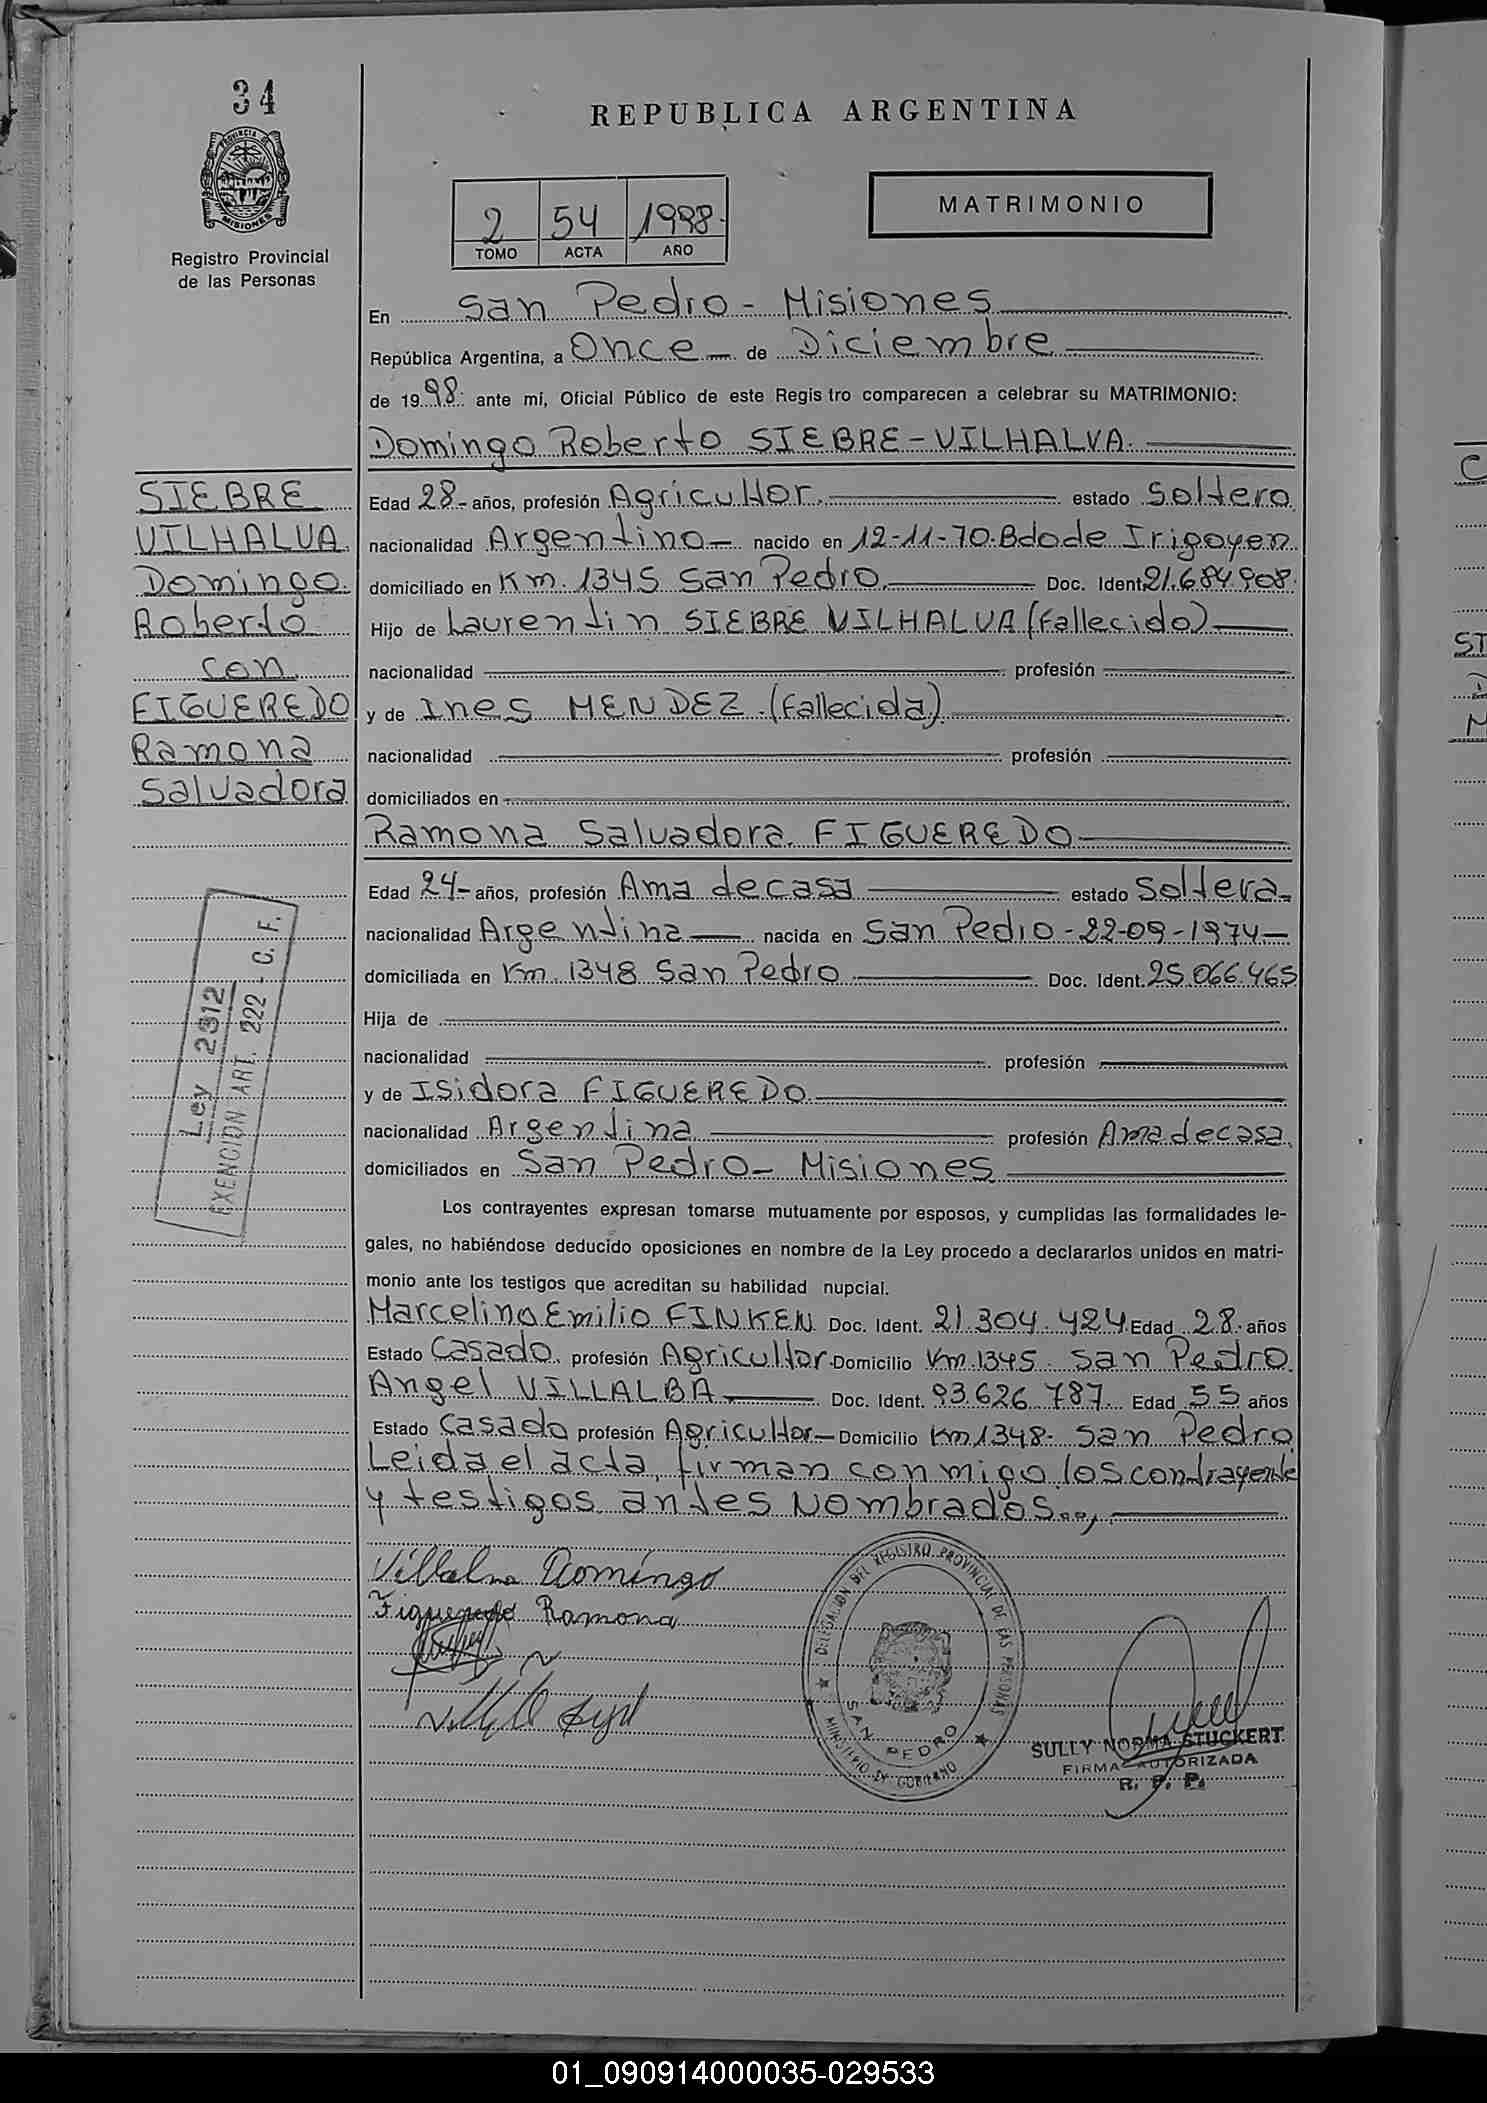 34
REPUBLICA ARGENTINA
PROVINCIA DE
MISIONES
Registro Provincial
de las Personas
2 54 1998
TOMO ACTA AÑO
MATRIMONIO
En San Pedro - Misiones
República Argentina, a Once de Diciembre
de 1998 ante mí, Oficial Público de este Regis tro comparecen a celebrar su MATRIMONIO:
Domingo Roberto SIEBRE-VILHALVA.
SIEBRE
VILHALVA
Domingo
Roberto
con
FIGUEREDO
Ramona
Salvadora
Edad 28- años, profesión Agricultor. estado Soltero
nacionalidad Argentino nacido en 12-11-70. Bdo de Irigoyen
domiciliado en Km. 1345 San Pedro Doc. Ident. 21.684.908.
Hijo de Laurentin SIEBRE VILHALVA (Fallecido)
nacionalidad profesión
y de Ines MENDEZ. (Fallecida)
nacionalidad profesión
domiciliados en
Ramona Salvadora FIGUEREDO
Edad 24- años, profesión Ama de casa estado Soltera
nacionalidad Argentina nacida en San Pedro - 22-09-1974
domiciliada en Km. 1348 San Pedro Doc. Ident. 25.066.465
Hija de
nacionalidad profesión
y de Isidora FIGUEREDO
nacionalidad Argentina profesión Ama de casa
domiciliados en San Pedro - Misiones
Ley 2312
EXENCION ART. 222 - C. F.
Los contrayentes expresan tomarse mutuamente por esposos, y cumplidas las formalidades le-
gales, no habiéndose deducido oposiciones en nombre de la Ley procedo a declararlos unidos en matri-
monio ante los testigos que acreditan su habilidad nupcial.
Marcelino Emilio FINKEN Doc. Ident. 21.304.424 Edad 28 años
Estado Casado profesión Agricultor Domicilio Km. 1345 San Pedro
Angel VILLALBA Doc. Ident. 93.626.787 Edad 55 años
Estado Casado profesión Agricultor Domicilio Km 1348- San Pedro
Leida el acta, firman conmigo los contrayente
y testigos antes Nombrados.
Domingo
Figueredo Ramona
DELEGACION DEL REGISTRO PROVINCIAL DE LAS PERSONAS
SAN PEDRO
MINISTERIO DE GOBIERNO
SULLY NORMA STUCKERT
FIRMA AUTORIZADA
R. P. P.
C
ST
D
M
01_090914000035-029533